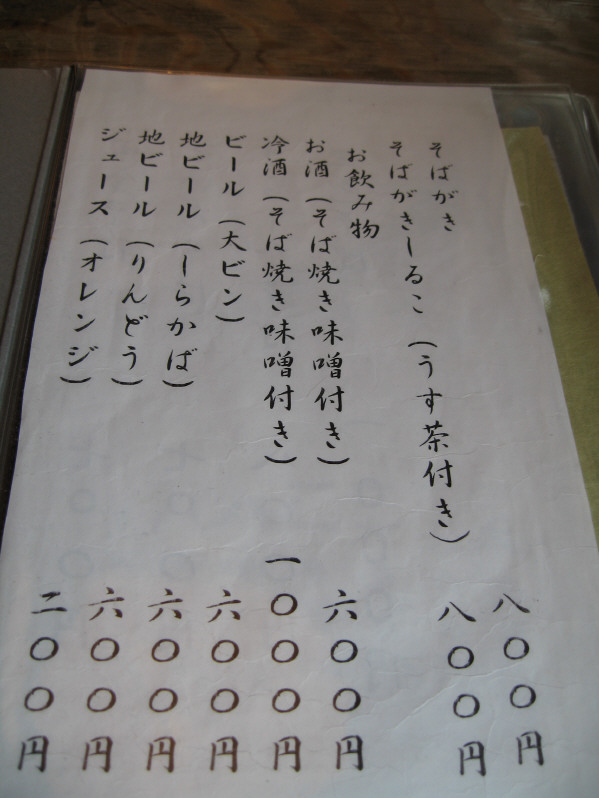 そばがき 八〇〇円
そばがきしるこ（うす茶付き） 八〇〇円
お飲み物
お酒（そば焼き味噌付き） 六〇〇円
冷酒（そば焼き味噌付き） 一〇〇〇円
ビール（大ビン） 六〇〇円
地ビール（しらかば） 六〇〇円
地ビール（りんどう） 六〇〇円
ジュース（オレンジ） 二〇〇円